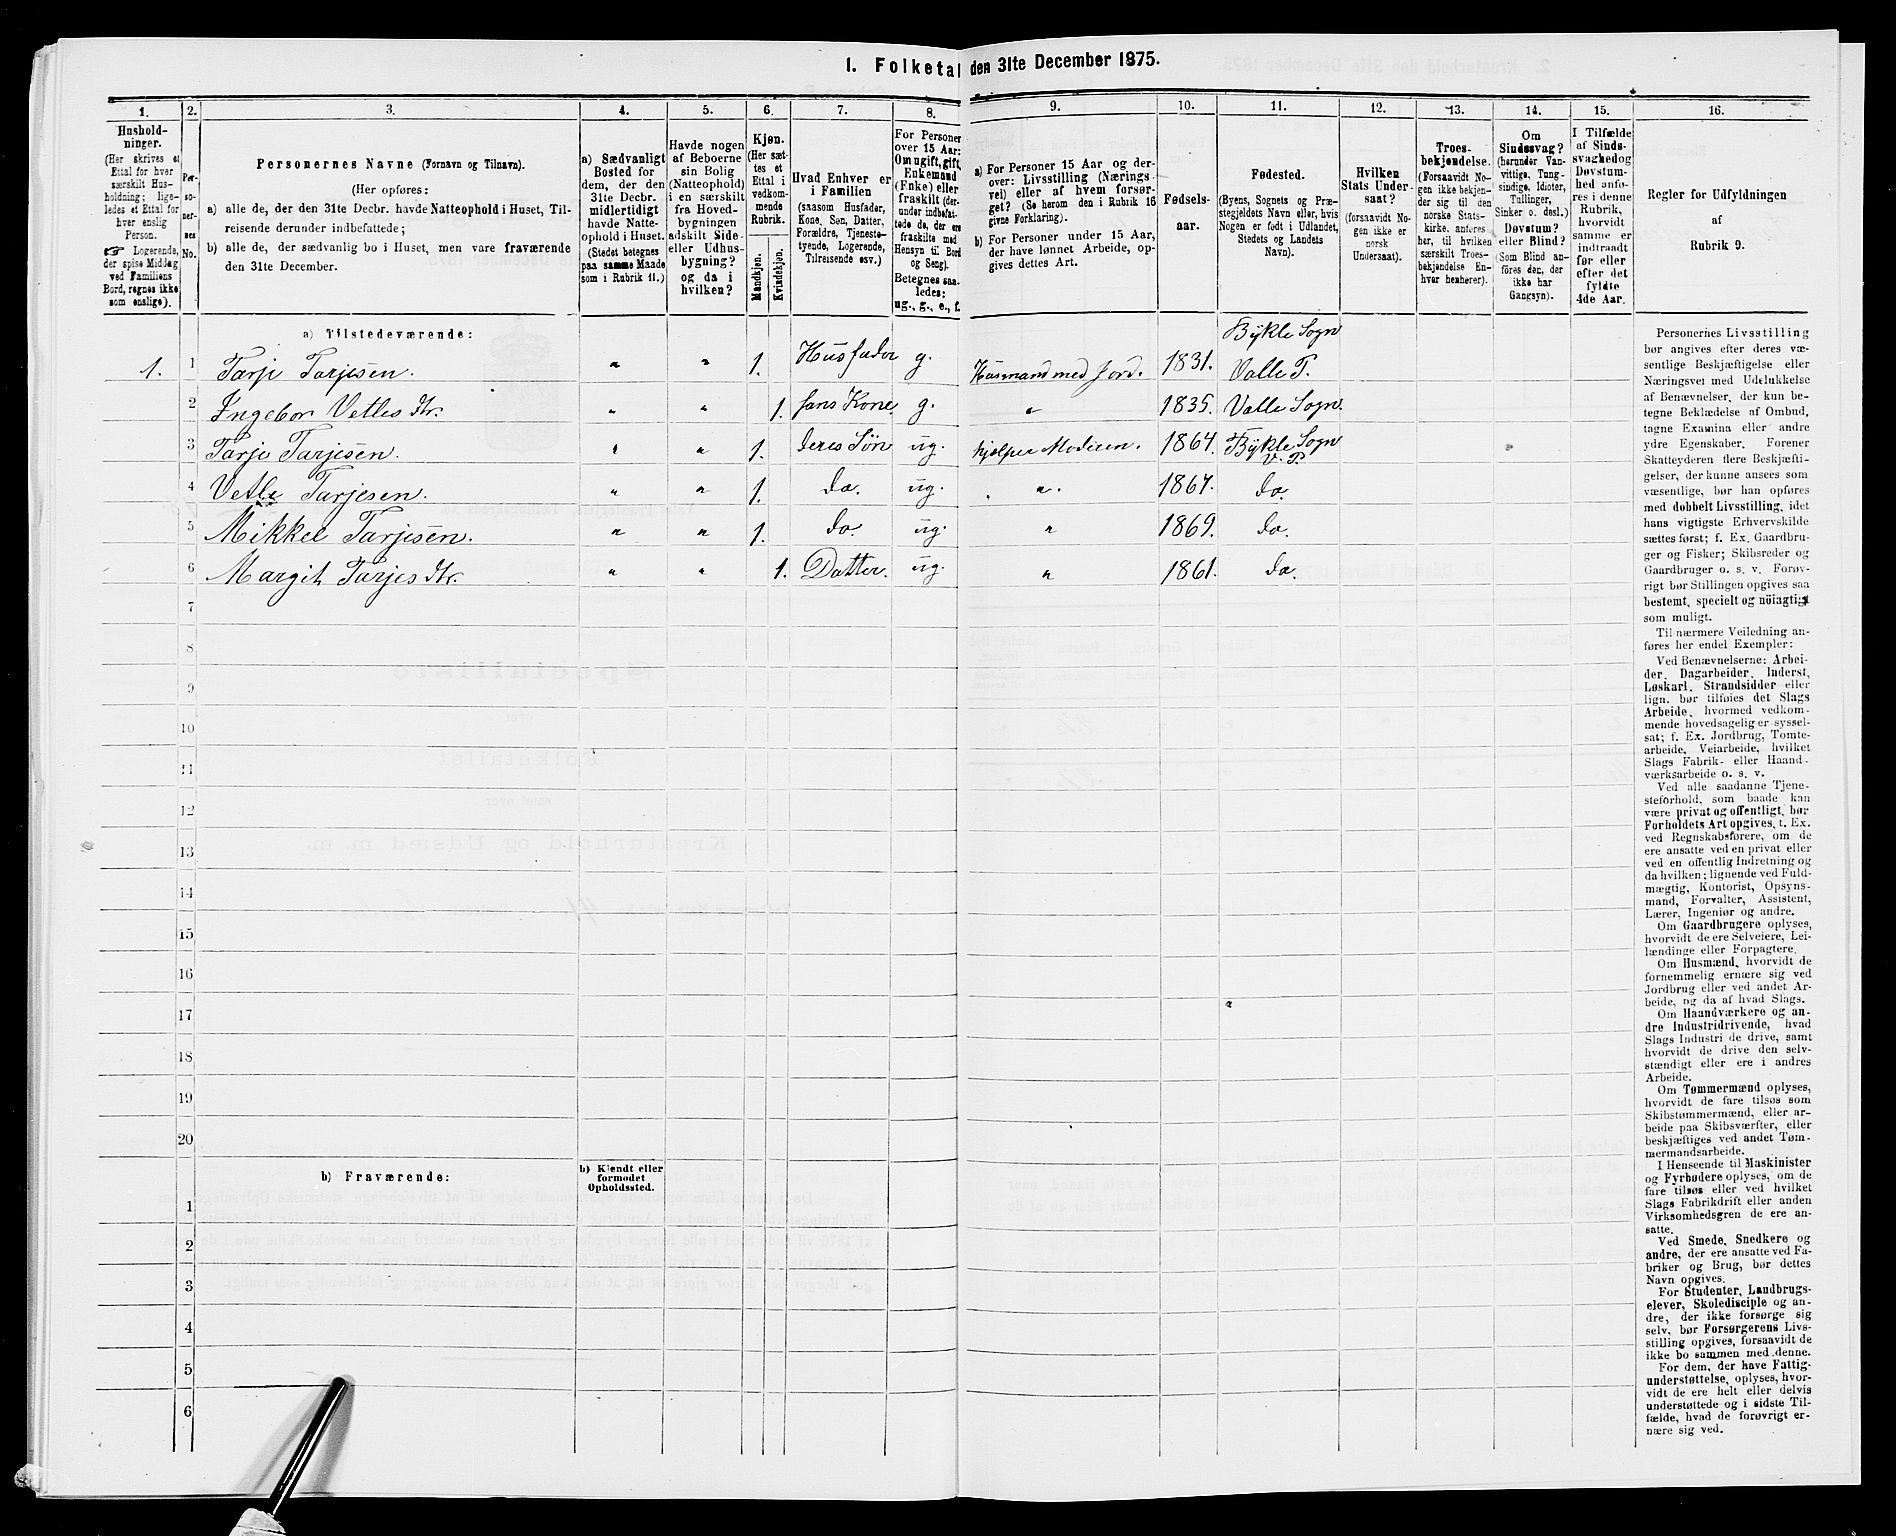 1. Folketal den 31te December 1875.
1. 2. 3. 4. 5. 6. 7. 8. 9. 10. 11. 12. 13. 14. 15. 16.
Hushold-
ninger.
(Her skrives et
Ettal for hver
særskilt Hus-
holdning; lige-
ledes et Ettal for
hver enslig
Person.
☞ Logerende,
der spise Middag
ved Familiens
Bord, regnes ikke
som enslige).
Per-
so-
ner-
nes
No.
Personernes Navne (Fornavn og Tilnavn).
(Her opføres:
a) alle de, der den 31te Decbr. havde Natteophold i Huset, Til-
reisende derunder indbefattede;
b) alle de, der sædvanlig bo i Huset, men vare fraværende
den 31te December.
a) Sædvanligt
Bosted for
dem, der den
31te Decbr.
midlertidigt
havde Natte-
ophold i Huset.
(Stedet betegnes
paa samme Maade
som i Rubrik 11.)
Havde nogen
af Beboerne
sin Bolig
(Natteophold)
i en særskilt
fra Hoved-
bygningen
adskilt Side-
eller Udhus-
bygning?
og da i
hvilken?
Kjøn.
(Her sæt-
tes et
Ettal i
vedkom-
mende
Rubrik.
Mandkjøn.
Kvindekjøn.
Hvad Enhver er
i Familien
(saasom Husfader,
Kone, Søn, Datter,
Forældre, Tjeneste-
tyende, Logerende,
Tilreisende osv.)
For Personer
over 15 Aar:
Om ugift, gift,
Enkemand
(Enke) eller
fraskilt (der-
under indbefat-
tede de, der ere
fraskilte med
Hensyn til Bord
og Seng).
Betegnes saa-
ledes:
ug., g., e., f.
a) For Personer 15 Aar og der-
over: Livsstilling (Nærings-
vei) eller af hvem forsør-
get? (Se herom den i Rubrik 16
givne Forklaring).
b) For Personer under 15 Aar,
der have lønnet Arbeide, op-
gives dettes Art.
Fødsels-
aar.
Fødested.
(Byens, Sognets og Præ-
stegjeldets Navn eller, hvis
Nogen er født i Udlandet,
Stedets og Landets
Navn).
Hvilken
Stats Under-
saat?
(forsaavidt No-
gen ikke er
norsk
Undersaat).
Troes-
bekjendelse.
(Forsaavidt No-
gen ikke bekjen-
der sig til den
norske Stats-
kirke, anføres
her, til hvilken
særskilt Troes-
bekjendelse En-
hver henhører).
Om
Sindssvag?
(herunder Van-
vittige, Tung-
sindige, Idioter,
Tullinger,
Sinker o. desl.)
Døvstum?
eller Blind?
(Som Blind an-
føres den, der
ikke har
Gangsyn).
I Tilfælde
af Sinds-
svaghed og
Døvstum-
hed anfø-
res i denne
Rubrik,
hvorvidt
samme er
indtraadt
før eller
efter det
fyldte
4de Aar.
Regler for Udfyldningen
af
Rubrik 9.
a) Tilstedeværende:
1. 1 Tarje Tarjesen. " " 1. Husfader g. Husmand med Jord. 1831. Bykle Sogn Valle P.
2 Ingebor Vetles dtr. " " 1. hans Kone g. " 1835. Valle Sogn.
3 Tarje Tarjesen. " " 1. deres Søn ug. hjælper Moderen. 1864. Bykle Sogn V. P.
4 Vetle Tarjesen. " " 1. do. ug. " 1867. do.
5 Mikkel Tarjesen. " " 1. do. ug. " 1869. do.
6 Margit Tarjes dtr. " " 1. Datter. ug. " 1861. do.
7
8
9
10
11
12
13
14
15
16
17
18
19
20
b) Fraværende:
b) Kjendt eller
formodet
Opholdssted.
1
2
3
4
5
6
Personernes Livsstilling
bør angives efter deres væ-
sentlige Beskjæftigelse eller
Næringsvei med Udelukkelse
af Benævnelser, der kun be-
tegne Beklædelse af Ombud,
tagne Examina eller andre
ydre Egenskaber. Forener
Skatteyderen flere Beskjæfti-
gelser, der kunne ansees som
væsentlige, bør han opføres
med dobbelt Livsstilling, idet
hans vigtigste Erhvervskilde
sættes først; f. Ex. Gaardbru-
ger og Fisker; Skibsreder og
Gaardbruger o. s. v. Forøv-
rigt bør Stillingen opgives saa
bestemt, specielt og nøiagtigt
som muligt.
Til nærmere Veiledning an-
føres her endel Exempler:
Ved Benævnelserne: Arbei-
der, Dagarbeider, Inderst,
Løskarl, Strandsidder eller
lign. bør tilføies det Slags
Arbeide, hvormed vedkom-
mende hovedsagelig er syssel-
sat; f. Ex. Jordbrug, Tomte-
arbeide, Veiarbeide, hvilket
Slags Fabrik- eller Haand-
værksarbeide o. s. v.
Ved alle saadanne Tjene-
steforhold, som baade kan
være privat og offentligt, bør
Forholdets Art opgives, t. Ex.
ved Regnskabsførere, om de
ere ansatte ved en privat eller
ved en offentlig Indretning og
da hvilken; lignende ved Fuld-
mægtig, Kontorist, Opsyns-
mand, Forvalter, Assistent,
Lærer, Ingeniør og andre.
Om Gaardbrugere oplyses,
hvorvidt de ere Selveiere, Lei-
lændinge eller Forpagtere.
Om Husmænd, hvorvidt de
fornemmelig ernære sig ved
Jordbrug eller ved andet Ar-
beide, og da af hvad Slags.
Om Haandværkere og an-
dre Industridrivende, hvad
Slags Industri de drive, samt
hvorvidt de drive den selv-
stændigt eller ere i andres
Arbeide.
Om Tømmermænd oplyses,
hvorvidt de fare tilsøs som
Skibstømmermænd, eller ar-
beide paa Skibsværfter, eller
beskjæftiges ved andet Tøm-
mermandsarbeide.
I Henseende til Maskinister
og Fyrbødere oplyses, om de
fare tilsøs eller ved hvilket
Slags Fabrikdrift eller anden
Virksomhedsgren de ere an-
satte.
Ved Smede, Snedkere og
andre, der ere ansatte ved Fa-
briker og Brug, bør dettes
Navn opgives.
For Studenter, Landbrugs-
elever, Skoledisciple og an-
dre, der ikke forsørge sig
selv, bør Forsørgerens Livs-
stilling opgives, forsaavidt de
ikke bo sammen med denne.
For dem, der have Fattig-
understøttelse, oplyses, hvor-
vidt de ere helt eller delvis
understøttede og i sidste Til-
fælde, hvad de forøvrigt er-
nære sig ved.